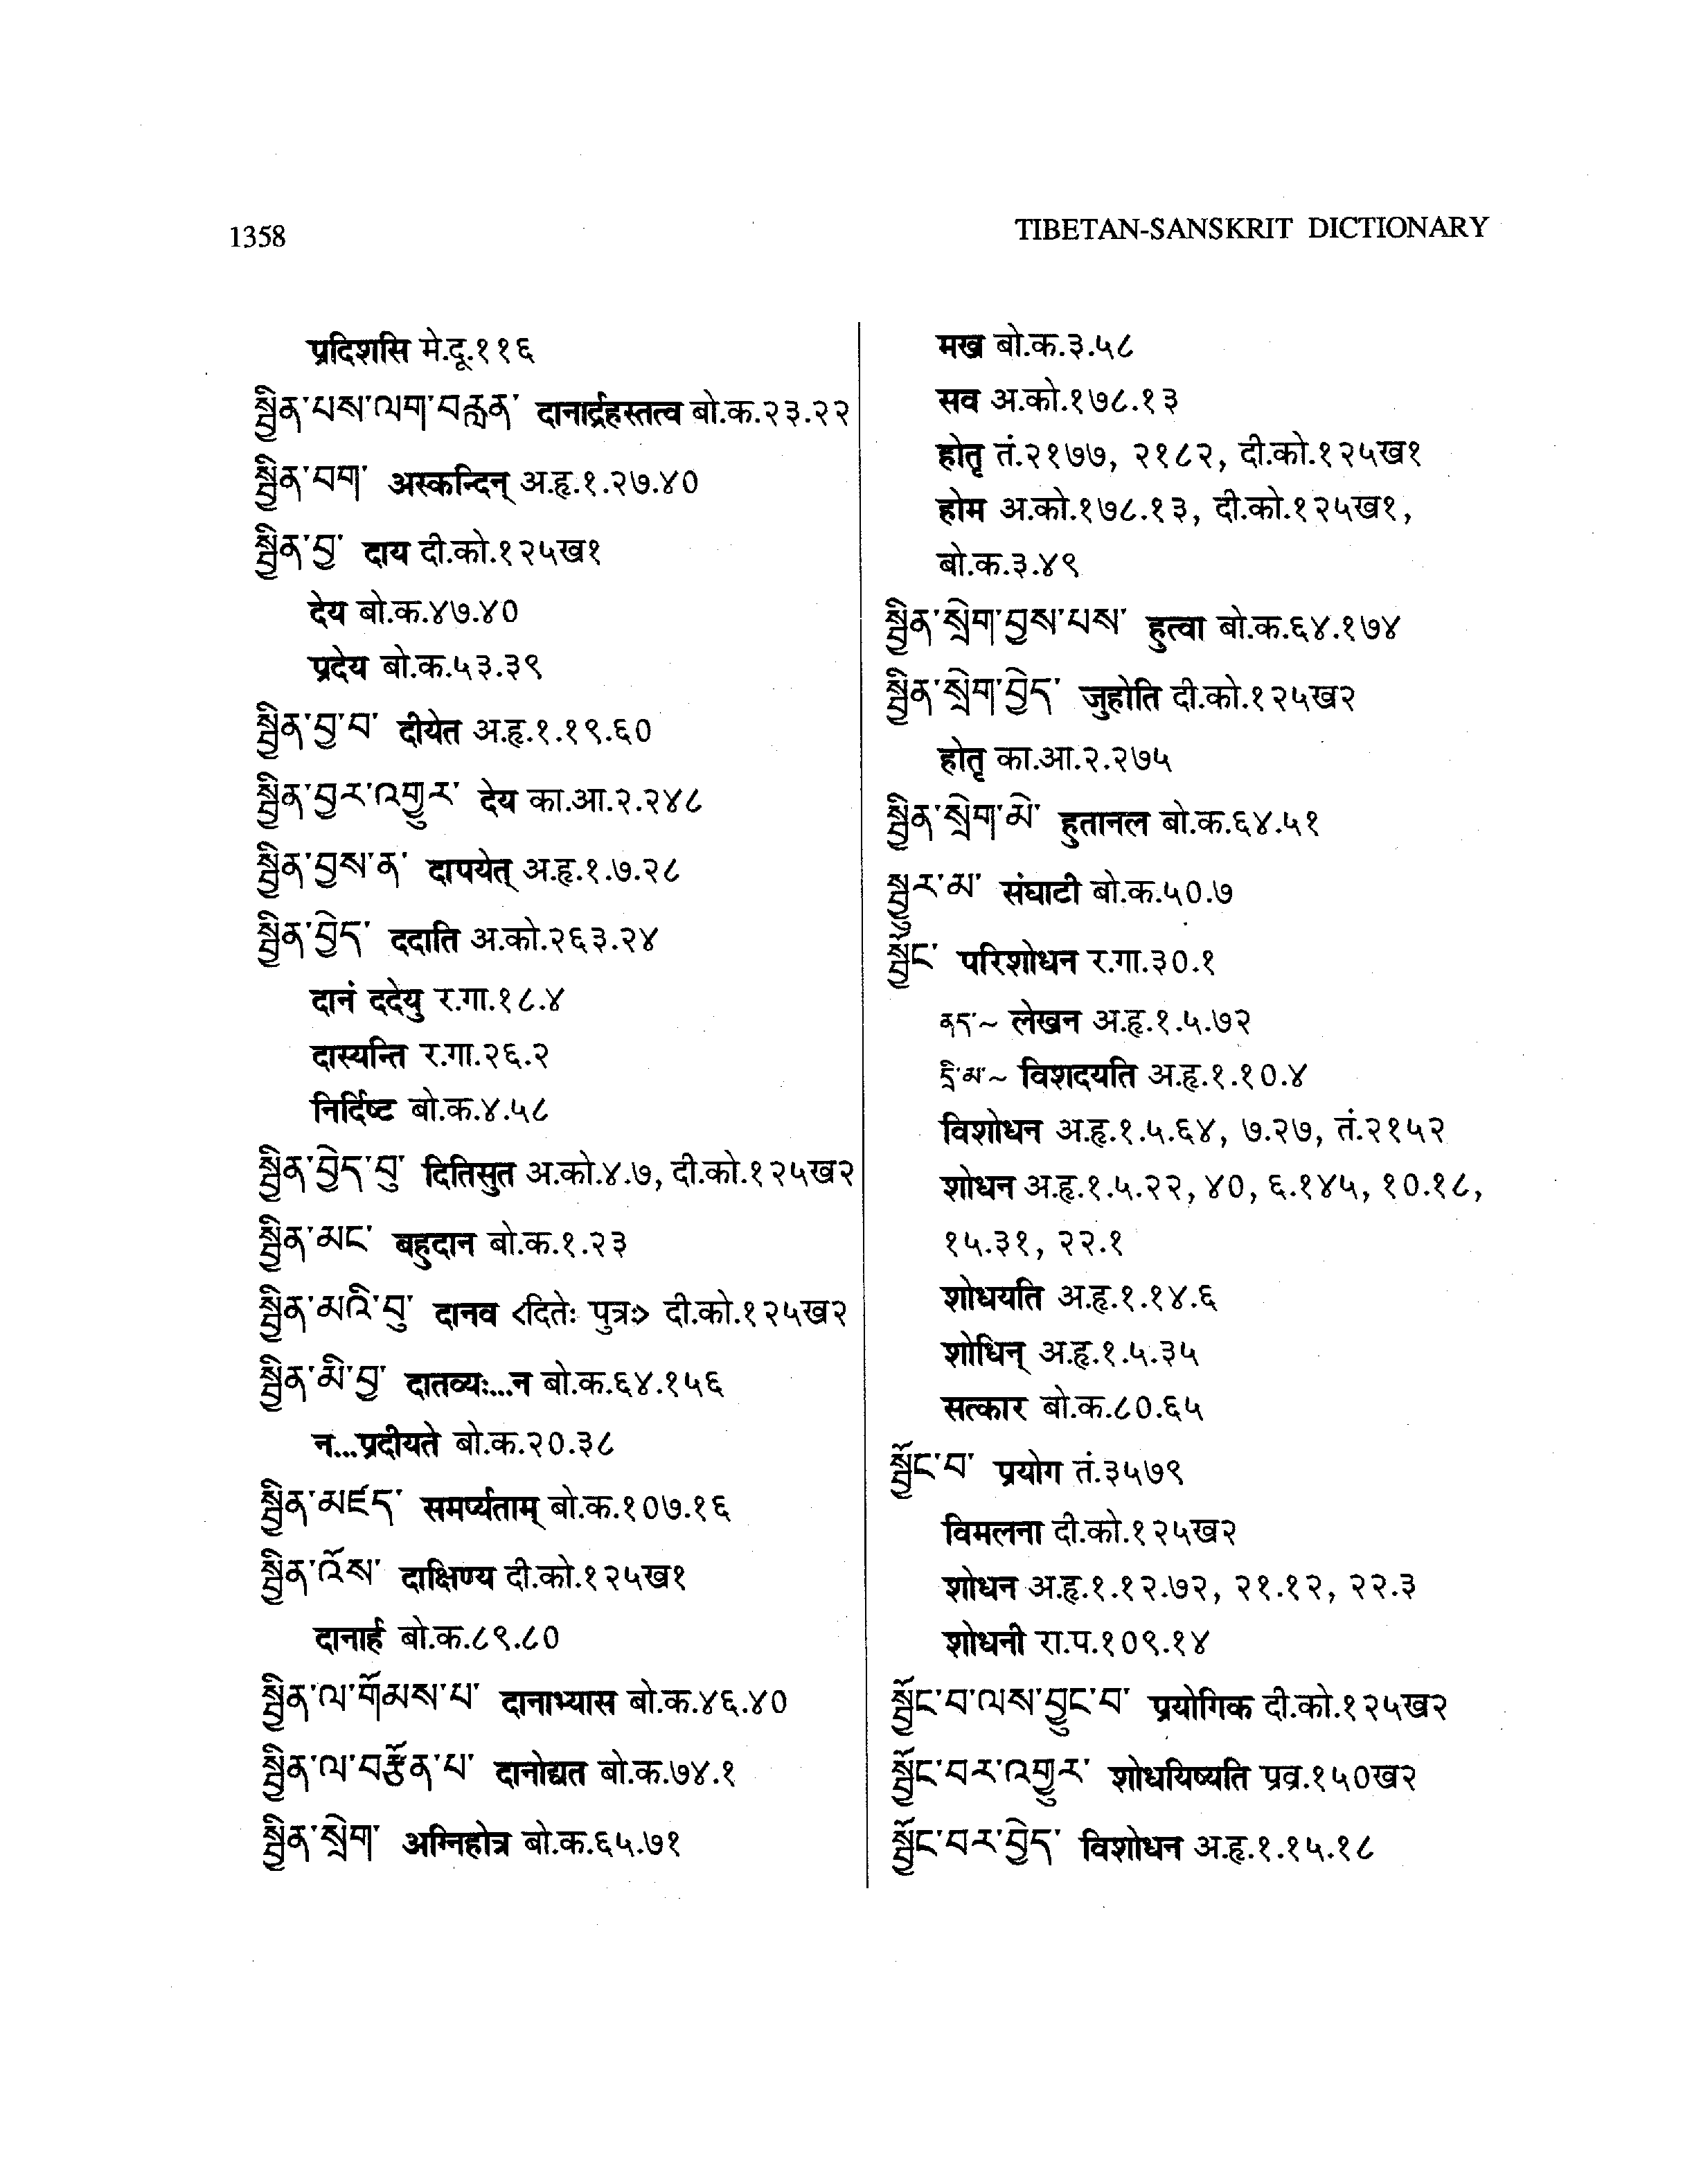 1358
TIBETAN-SANSKRIT DICTIONARY
प्रदिशसि मे.दू.११६
སྦྱིན་པས་ལག་བརླན་ दानार्द्रहस्तत्व बो.क.२३.२२
སྦྱིན་བག་ अस्कन्दिन् अ.हृ.१.२७.४०
སྦྱིན་བྱ་ दाय दी.को.१२५ख१
देय बो.क.४७.४०
प्रदेय बो.क.५३.३९
སྦྱིན་བྱ་བ་ दीयेत अ.हृ.१.१९.६०
སྦྱིན་བྱར་འགྱུར་ देय का.आ.२.२४८
སྦྱིན་བྱས་ན་ दापयेत् अ.हृ.१.७.२८
སྦྱིན་བྱེད་ ददाति अ.को.२६३.२४
दानं ददेयु र.गा.१८.४
दास्यन्ति र.गा.२६.२
निर्दिष्ट बो.क.४.५८
སྦྱིན་བྱེད་བུ་ दितिसुत अ.को.४.७, दी.को.१२५ख२
སྦྱིན་མང་ बहुदान बो.क.१.२३
སྦྱིན་མའི་བུ་ दानव <दितेः पुत्रः> दी.को.१२५ख२
སྦྱིན་མི་བྱ་ दातव्यः...न बो.क.६४.१५६
न...प्रदीयते बो.क.२०.३८
སྦྱིན་མཛད་ समर्प्यताम् बो.क.१०७.१६
སྦྱིན་འོས་ दाक्षिण्य दी.को.१२५ख१
दानार्ह बो.क.८९.८०
སྦྱིན་ལ་གོམས་པ་ दानाभ्यास बो.क.४६.४०
སྦྱིན་ལ་བརྩོན་པ་ दानोद्यत बो.क.७४.१
སྦྱིན་སྲེག་ अग्निहोत्र बो.क.६५.७१
मख बो.क.३.५८
सव अ.को.१७८.१३
होतृ तं.२१७७, २१८२, दी.को.१२५ख१
होम अ.को.१७८.१३, दी.को.१२५ख१,
बो.क.३.४९
སྦྱིན་སྲེག་བྱས་པས་ हुत्वा बो.क.६४.१७४
སྦྱིན་སྲེག་བྱེད་ जुहोति दी.को.१२५ख२
होतृ का.आ.२.२७५
སྦྱིན་སྲེག་མེ་ हुतानल बो.क.६४.५१
སྦྱར་མ་ संघाटी बो.क.५०.७
སྦྱོང་ परिशोधन र.गा.३०.१
ནད་~ लेखन अ.हृ.१.५.७२
དྲི་མ་~ विशदयति अ.हृ.१.१०.४
विशोधन अ.हृ.१.५.६४, ७.२७, तं.२१५२
शोधन अ.हृ.१.५.२२, ४०, ६.१४५, १०.१८,
१५.३१, २२.१
शोधयति अ.हृ.१.१४.६
शोधिन् अ.हृ.१.५.३५
सत्कार बो.क.८०.६५
སྦྱོང་བ་ प्रयोग तं.३५७९
विमलना दी.को.१२५ख२
शोधन अ.हृ.१.१२.७२, २१.१२, २२.३
शोधनी रा.प.१०९.१४
སྦྱོང་བ་ལས་བྱུང་བ་ प्रयोगिक दी.को.१२५ख२
སྦྱོང་བར་འགྱུར་ शोधयिष्यति प्रव्र.१५०ख२
སྦྱོང་བར་བྱེད་ विशोधन अ.हृ.१.१५.१८